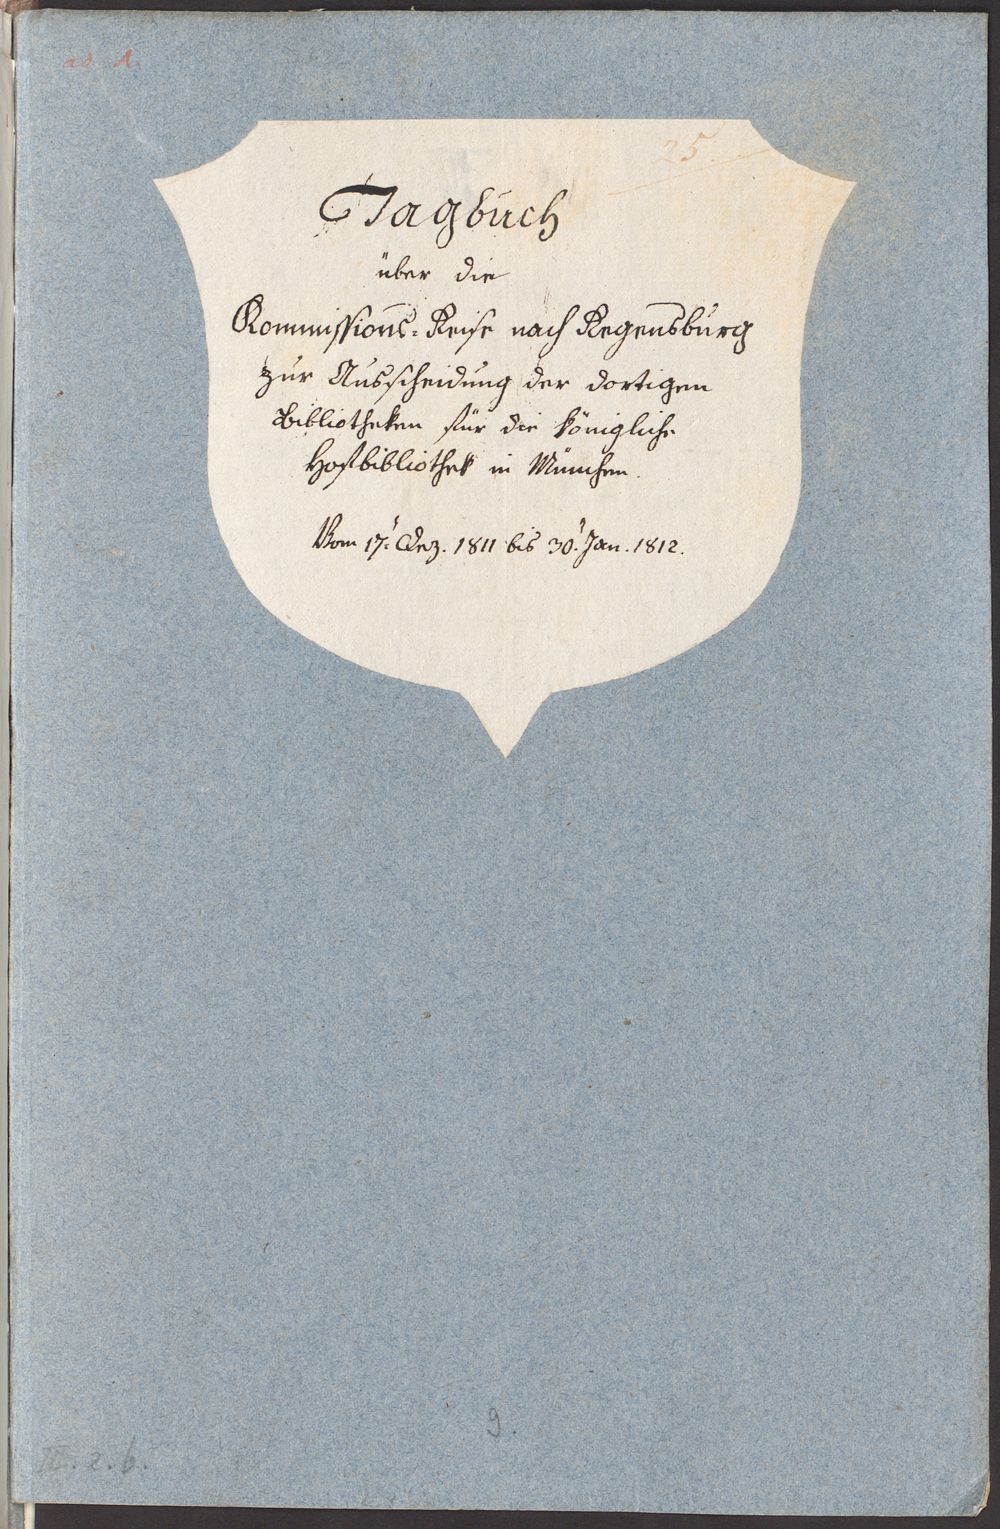 ad. A.
25.
Tagbuch
über die
Kommissions-Reise nach Regensburg
zur Ausscheidung der dortigen
Bibliotheken für die königliche
Hofbibliothek in München.
Vom 17.t Dez. 1811 bis 30.t Jan. 1812.
9.
II. 2. b.